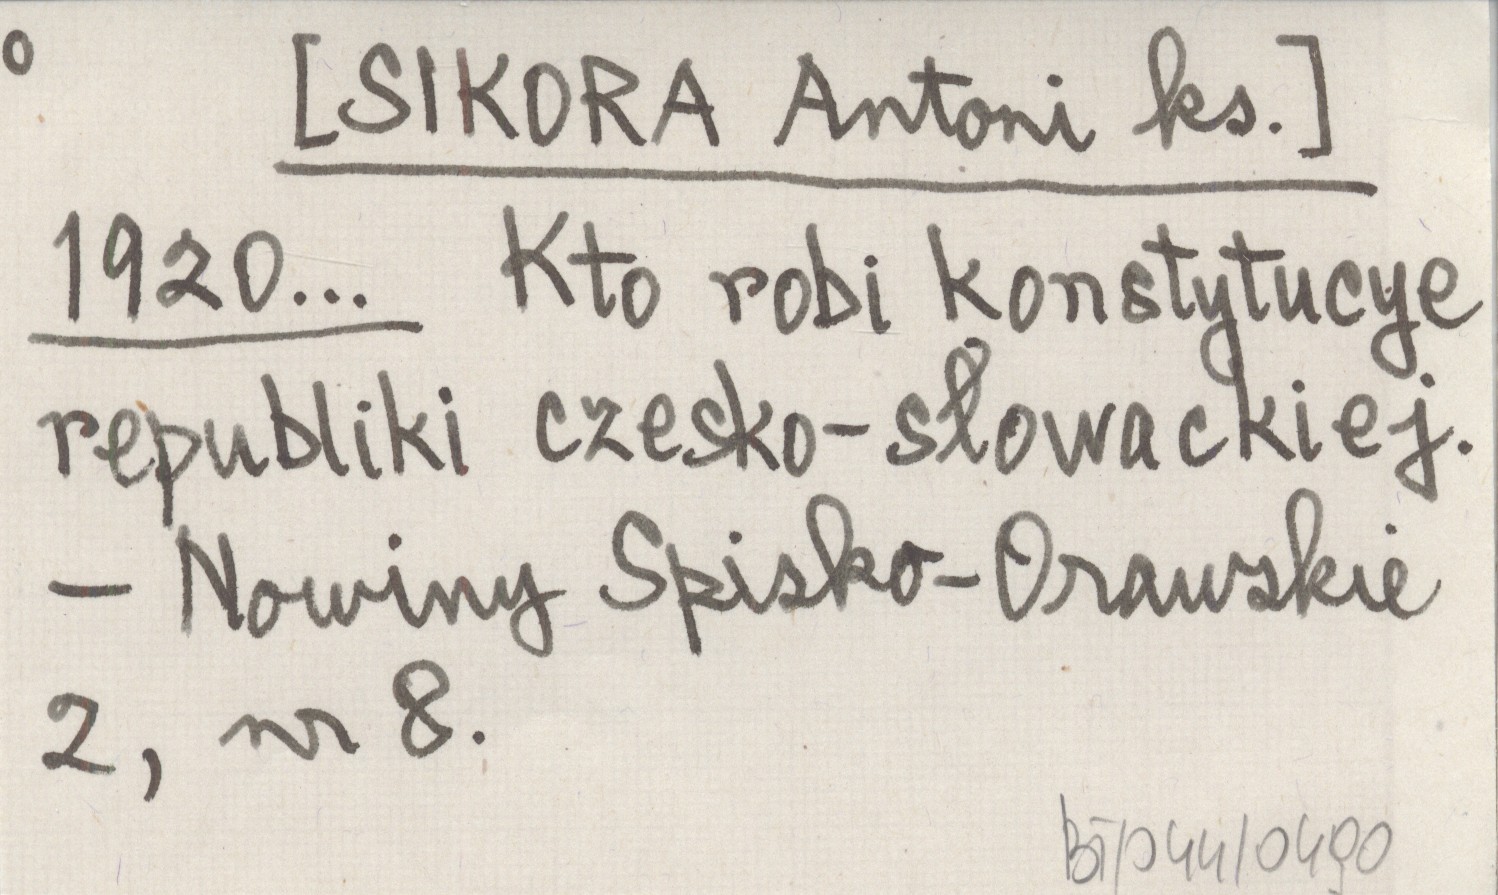 o
[SIKORA Antoni ks.]
1920... Kto robi konstytucye
republiki czesko-słowackiej.
— Nowiny Spisko-Orawskie
2, nr 8.
BT/044/0490